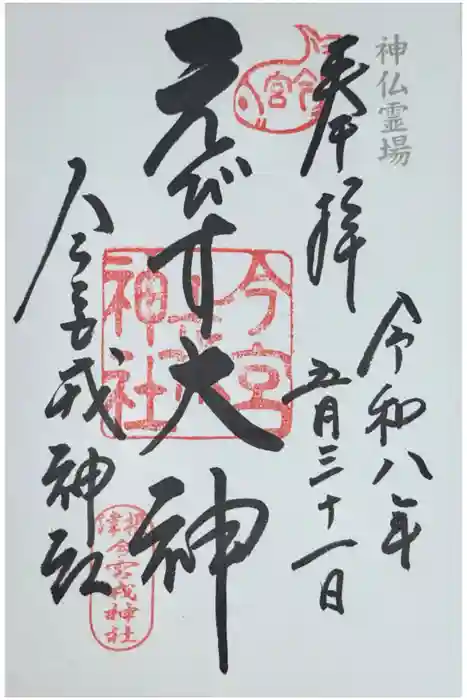 神仏霊場
奉拝
令和八年
五月三十一日
えびす大神
今宮戎神社
今宮
今宮
戎
神社
摂津
今宮戎神社